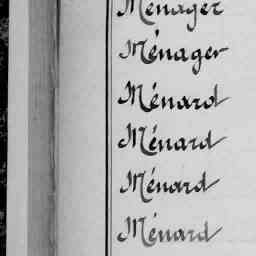 Ménager
Ménager
Ménard
Ménard
Ménard
Ménard